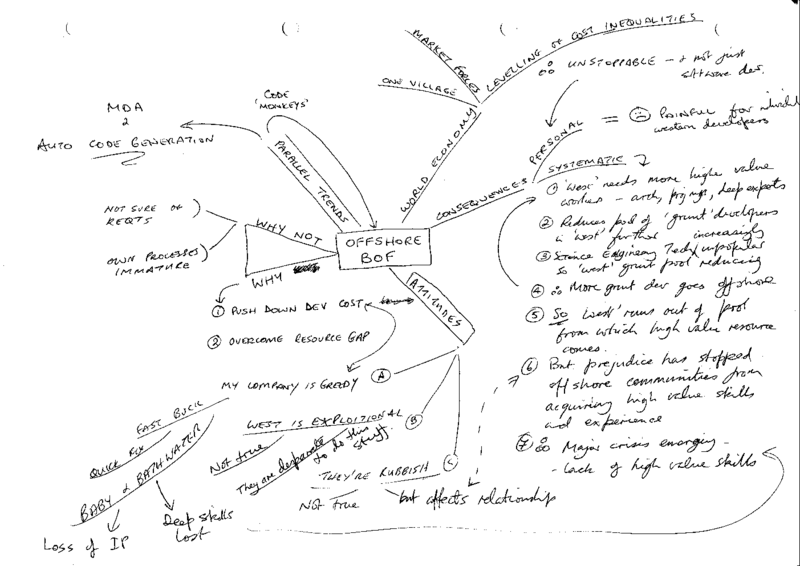 MARKET FORCES
LEVELLING OF COST INEQUALITIES
ONE VILLAGE
WORLD ECONOMY
∴ UNSTOPPABLE - & not just
software dev.
CODE
'MONKEYS'
MDA
&
AUTO CODE GENERATION
PARALLEL TRENDS
PERSONAL
= ☹ PAINFUL for individual
western developers
CONSEQUENCES
SYSTEMATIC
① 'West' needs more high value
workers - arch, proj mgs, deep experts
② Reduces pool of 'grunt' developers
in 'west' further increasingly
③ Science Engineering Tech unpopular
so 'west' grunt pool reducing
④ ∴ More grunt dev goes offshore
⑤ So 'West' runs out of pool
from which high value resource
comes.
⑥ But prejudice has stopped
offshore communities from
acquiring high value skills
and experience
⑦ ∴ Major crisis emerging -
- lack of high value skills
OFFSHORE
BOF
WHY NOT
NOT SURE OF
REQTS
OWN PROCESSES
IMMATURE
WHY
① PUSH DOWN DEV COST
② OVERCOME RESOURCE GAP
ATTITUDES
MY COMPANY IS GREEDY Ⓐ
FAST BUCK
QUICK FIX
BABY & BATHWATER
Loss of IP
Deep skills
lost
WEST IS EXPLOITIONAL Ⓑ
Not true
They are desperate
to do this
stuff.
THEY'RE RUBBISH Ⓒ
Not true
but affects relationship